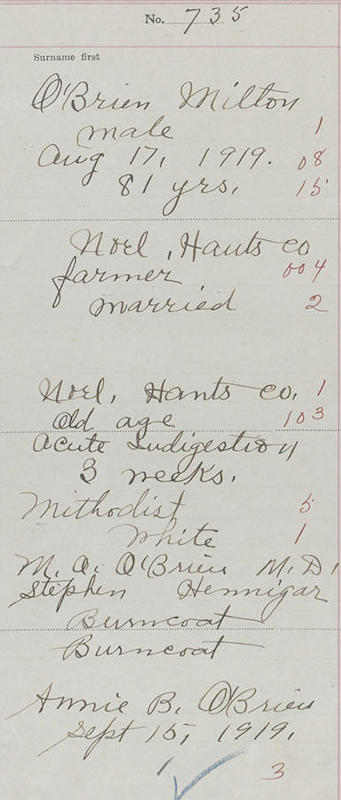 No. 735
Surname first
O'Brien Milton
male 1
Aug 17, 1919. 08
81 yrs. 15
Noel, Hants co
farmer 004
married 2
Noel, Hants co. 1
Old age 103
Acute Indigestion
3 weeks.
Mithodist 5
White 1
M. A. O'Brien M.D.
Stephen Hennigar
Burncoat
Burncoat
Annie B. O'Brien
Sept 15, 1919.
3